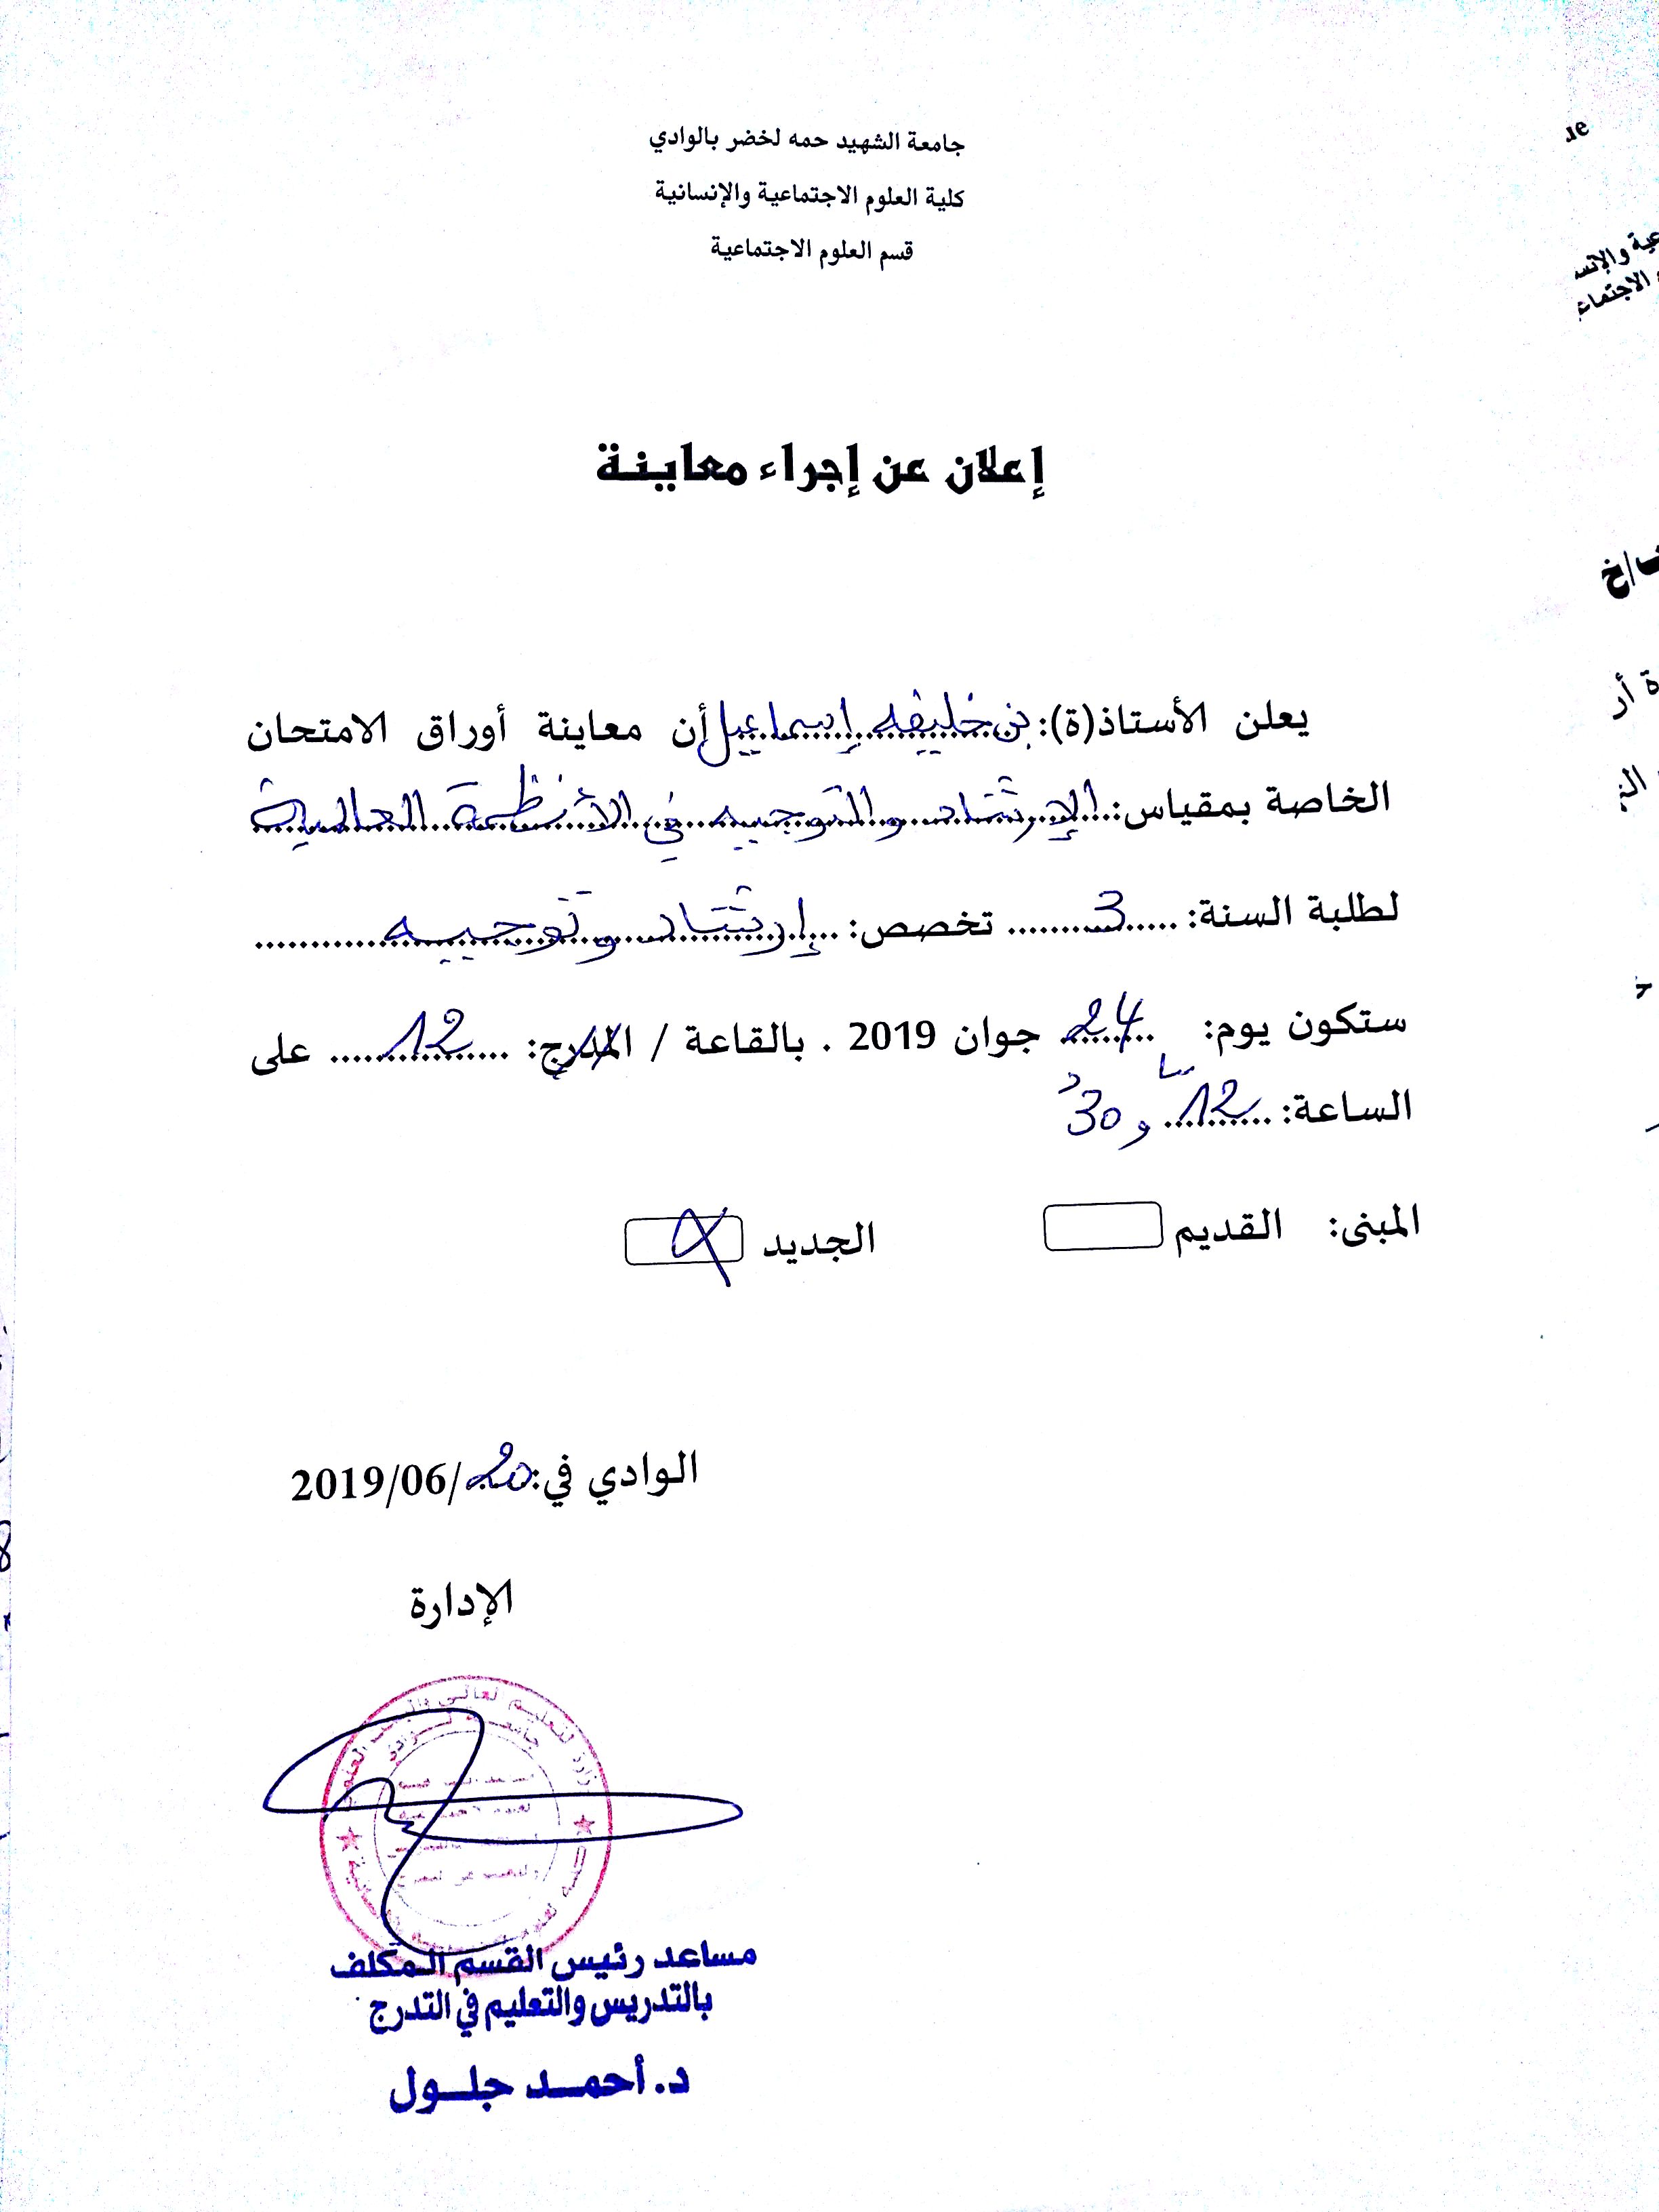 جامعة الشهيد حمه لخضر بالوادي
كلية العلوم الاجتماعية والإنسانية
قسم العلوم الاجتماعية
إعلان عن إجراء معاينة
يعلن الأستاذ(ة): بن خليفه إسماعيل أن معاينة أوراق الامتحان
الخاصة بمقياس: الإرشاد والتوجيه في الأنظمة العالمية
لطلبة السنة: ......3.......... تخصص: ....إرشاد وتوجيه....................
ستكون يوم: 24 جوان 2019 . بالقاعة / المدرج: ......12.......... على
الساعة: 12 سا و 30 د
المبنى: القديم الجديد
الوادي في: 20/2019/06
الإدارة
مساعد رئيس القسم المكلف
بالتدريس والتعليم في التدرج
د. أحمد جلول